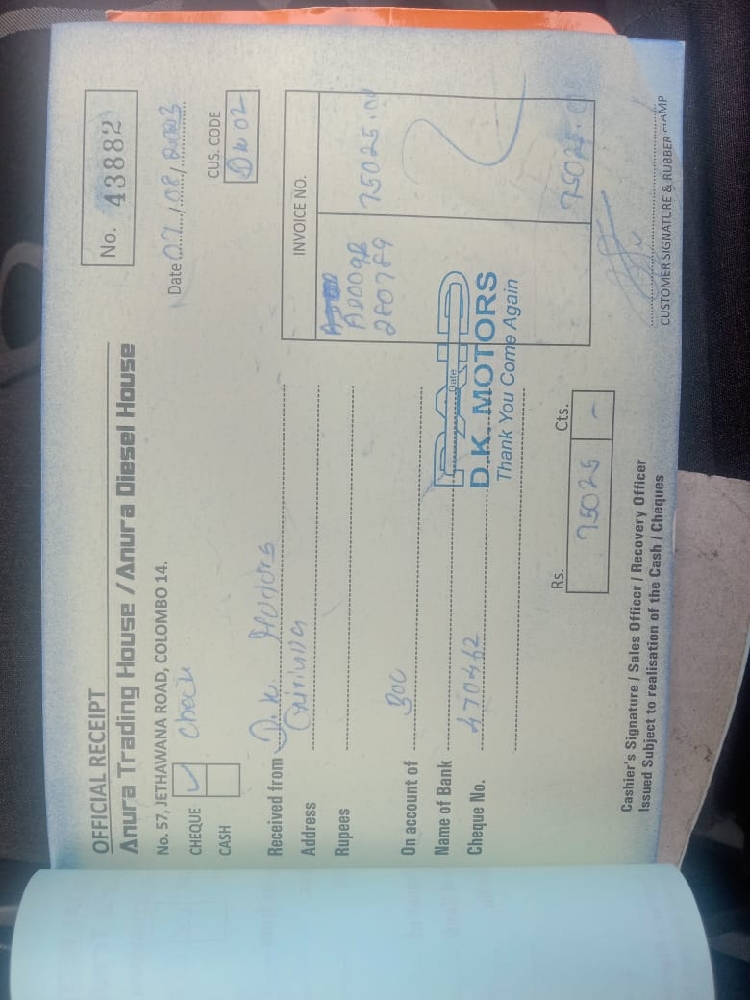 OFFICIAL RECEIPT
Anura Trading House / Anura Diesel House
No. 57, JETHAWANA ROAD, COLOMBO 14.
No. 43882
Date 07/08/2023
CHEQUE ✓ check
CASH
CUS. CODE
DK02
Received from D.K. Motors
Address
Rupees
On account of BOC
Name of Bank
Cheque No. 470462
INVOICE NO.
75025.00
280789
75025.00
PAID
Date
D.K. MOTORS
Thank You Come Again
Rs. Cts.
75025 -
Cashier's Signature / Sales Officer / Recovery Officer
Issued Subject to realisation of the Cash / Cheques
CUSTOMER SIGNATURE & RUBBER STAMP